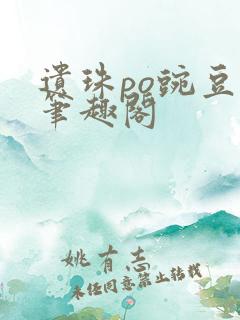 遗珠po豌豆
笔趣阁
姚有志
未经同意禁止转载